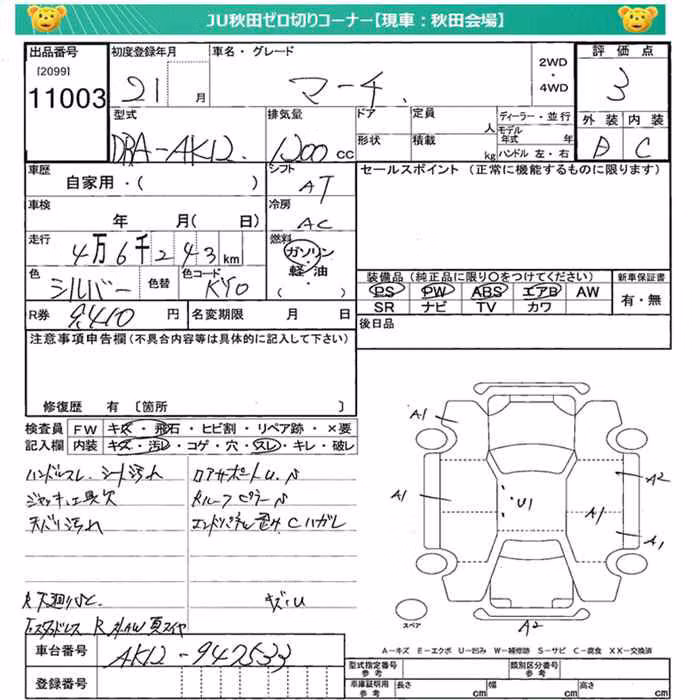 JU秋田ゼロ切りコーナー【現車：秋田会場】
出品番号
[2099]
11003
初度登録年月
21 月
車名・グレード
マーチ
2WD
・
4WD
評価点
3
外装 内装
D C
型式
DBA-AK12
排気量
1200 cc
ドア
形状
定員 人
積載 kg
ディーラー・並行
モデル年式 年
ハンドル 左・右
車歴
自家用・( )
シフト
AT
セールスポイント (正常に機能するものに限ります)
車検
年 月( 日)
冷房
AC
走行
4万6千243km
燃料
ガソリン
・
軽油
( )
色
シルバー
色替
色コード
KY0
装備品 (純正品に限り○をつけてください)
PS PW ABS エアB AW
SR ナビ TV カワ
新車保証書
有・無
R券
9,410 円
名変期限 月 日
後日品
注意事項申告欄(不具合内容等は具体的に記入して下さい)
修復歴 有 〔箇所 〕
検査員 FW キズ・飛石・ヒビ割・リペア跡・×要
記入欄 内装 キズ・汚レ・コゲ・穴・スレ・キレ・破レ
ハンドルスレ シート汚れ
ジャッキ工具欠
天バリ汚れ
コアサポートU.
Rルーフピラー
エンドパネル Cハガレ
キズ・U
A1
A1
U1
A2
A1
A1
A2
スペア
A−キズ E−エクボ U−凹み W−補修跡 S−サビ C−腐食 XX−交換済
車台番号
AK12-947533
登録番号
型式指定番号
参考
類別区分番号
参考
車庫証明用
参考
長さ cm
幅 cm
高さ cm